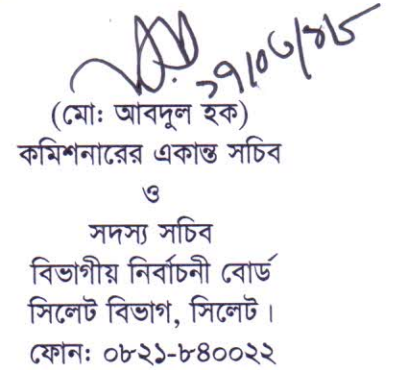 (মো: আবদুল হক)
কমিশনারের একান্ত সচিব
ও
সদস্য সচিব
বিভাগীয় নির্বাচনী বোর্ড
সিলেট বিভাগ, সিলেট।
ফোন: ০৮২১-৮৪০০২২